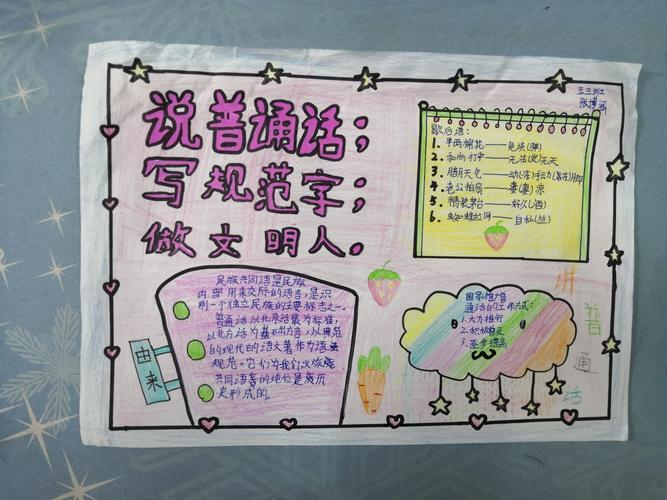 说普诵话；
写规范字；
做文明人。
五三班
张博涵
歇后语：
1. 半两棉花——免谈(弹)
2. 和尚打伞——无法(发)无天
3. 腊月天气——动(冻)手动(冻)脚
4. 老公拍扇——凄(妻)凉
5. 精装茅台——好久(酒)
6. 蜘蛛拉网——自私(丝)
由来
民族共同语是民族
内部用来交际的语言，是识
别一个独立民族的主要标志之一。
普通话以北京语音为标准，
以北方话为基础方言，以典范
的现代的语文著作为语法
规范。它们为我们汉族
共同语言的地位是族历
史形成的。
国家推
通话的工作方式：
1. 大力推行
2. 积极普及
3. 逐步提高
讲
普
通
话